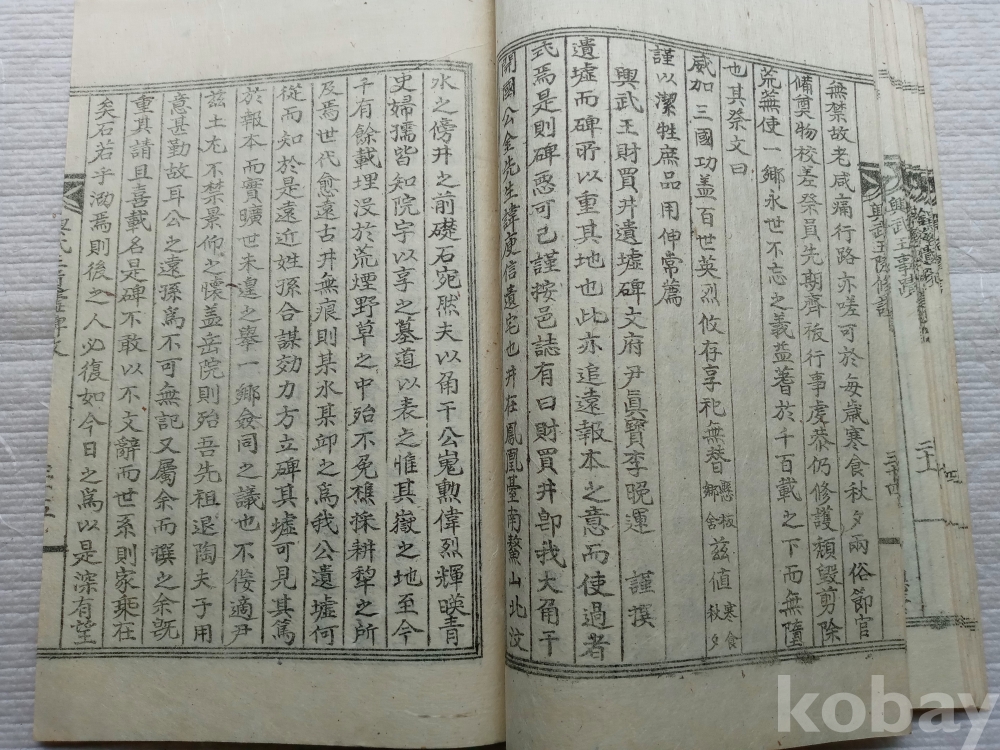 無禁故老咸痛行路亦嗟可於每歲寒食秋夕兩俗節官
備奠物校差祭員先期齊祓行事虔恭仍修護頹毀剪除
荒蕪使一鄉永世不忘之義益著於千百載之下而無墮
也其祭文曰
威加三國功盖百世英烈攸存享祀無替懸板鄉舍玆值寒食秋夕
謹以潔牲庶品用伸常薦
興武王財買井遺墟碑文府尹眞寶李晩運 謹撰
遺墟而碑所以重其地也此亦追遠報本之意而使過者
式焉是則碑惡可已謹按邑誌有曰財買井卽我大角干
開國公金先生諱庾信遺宅也井在鳳凰臺南鰲山北汶
水之傍井之前礎石宛然夫以角干公嵬勳偉烈輝暎青
史婦孺皆知院宇以享之墓道以表之惟其嶽之地至今
千有餘載埋没於荒煙野草之中殆不免樵採耕犂之所
及焉世代愈遠古井無痕則某水某邱之爲我公遺墟何
從而知於是遠近姓孫合謀効力方立碑其墟可見其篤
於報本而實曠世未遑之擧一鄉僉同之議也不侫適尹
玆土尤不禁景仰之懷盖岳院則殆吾先祖退陶夫子用
意甚勤故耳公之遠孫爲不可無記又屬余而撰之余旣
重其請且喜載名是碑不敢以不文辭而世系則家乘在
矣石若乎泐焉則後之人必復如今日之爲以是深有望
興武王事蹟
興武王陵修護
三十四
三十五
kobay